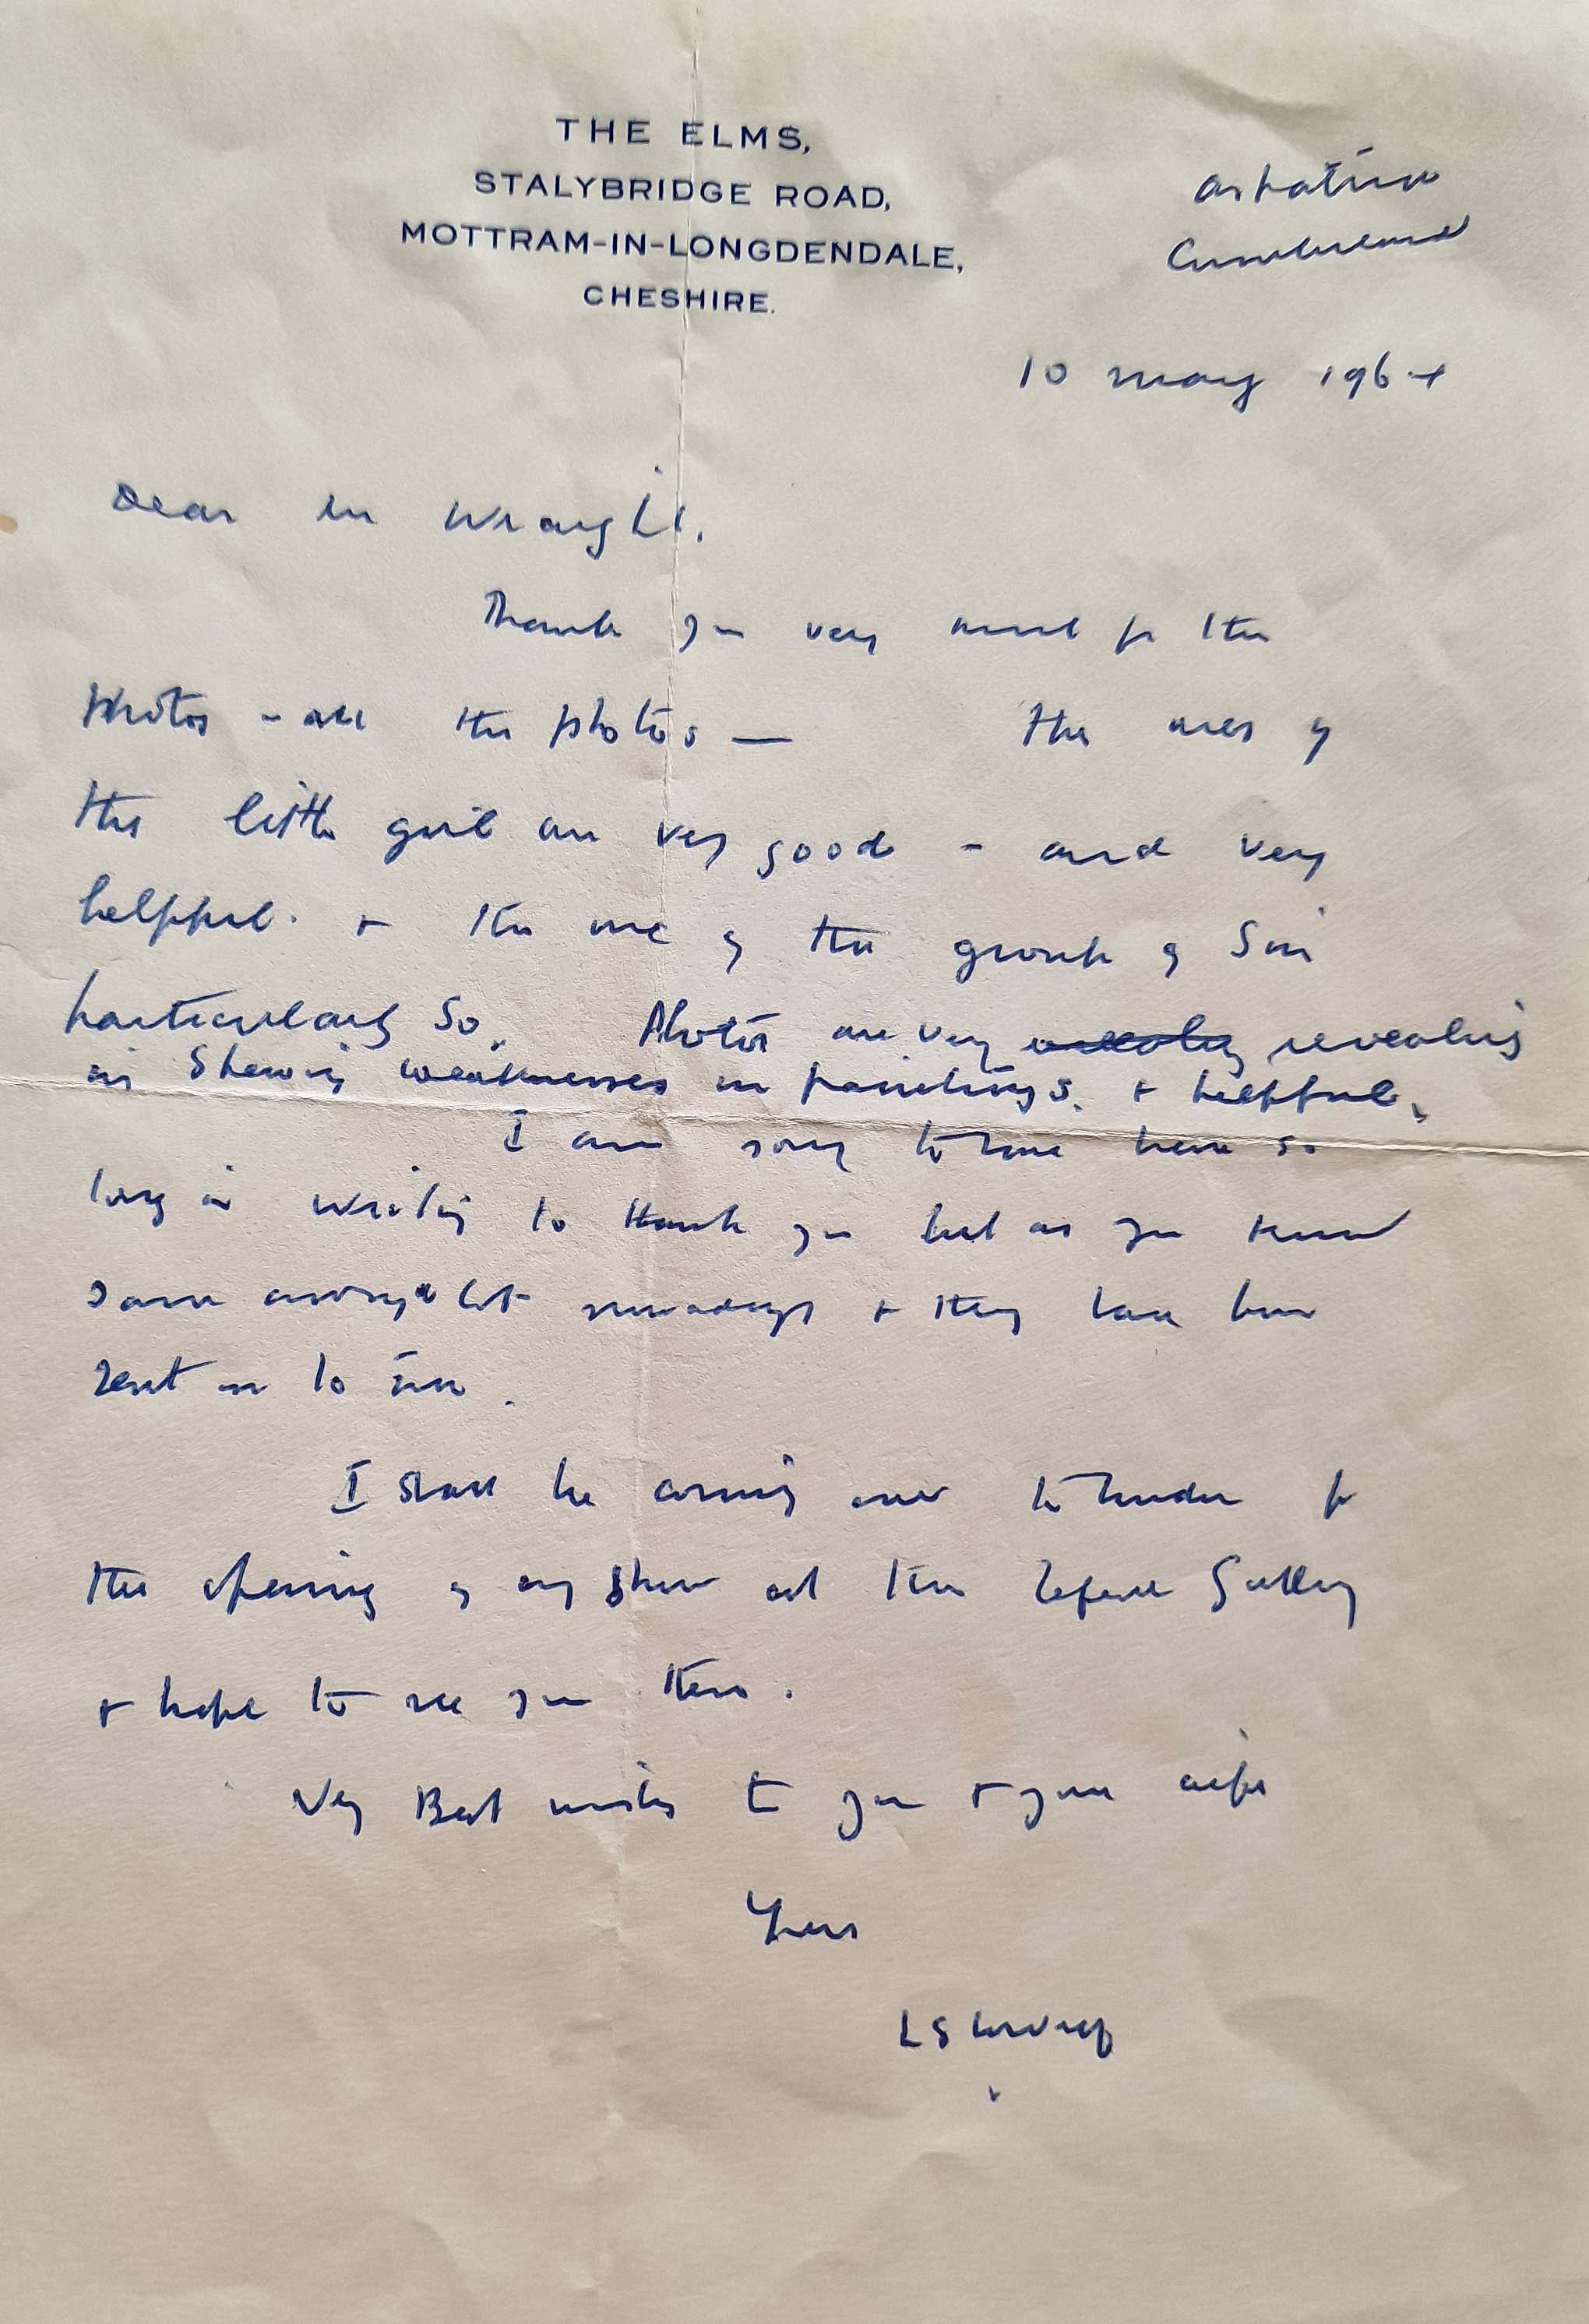 THE ELMS,
STALYBRIDGE ROAD,
MOTTRAM-IN-LONGDENDALE,
CHESHIRE.
Aspatria
Cumberland
10 May 1964
Dear Mr Wraight,
Thank you very much for the
Photos - all the photos — The ones of
the little girl are very good - and very
helpful. + the one of the group of Six
particularly So. Photos are very revealing
in Shewing weaknesses in paintings. + helpful.
I am sorry to have been so
long in writing to thank you but as you know
I am away a lot nowadays + they have been
sent on to me.
I shall be coming over to London for
the opening of my Show at the Lefevre Gallery
+ hope to see you there.
Very Best wishes to you + your wife
Yours
L S Lowry